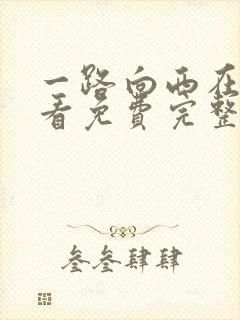 一路向西在
看免费完整
叁叁肆肆